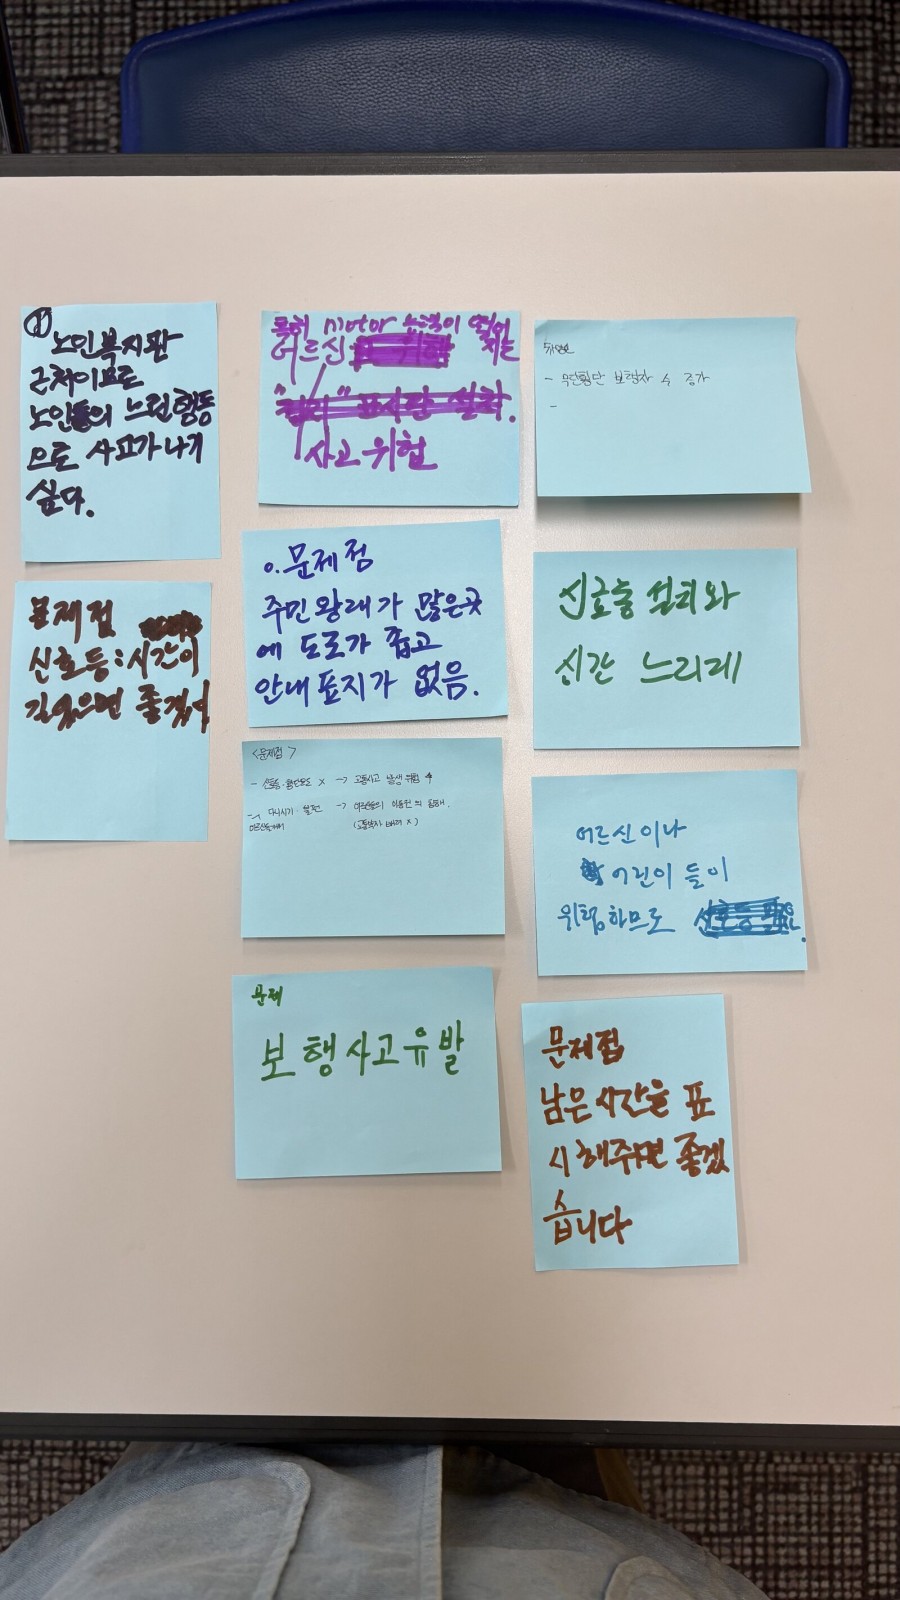 ①
노인복지관
근처이므로
노인들의 느린행동
으로 사고가 나기
쉽다.
문제점
신호등:시간이
길었으면 좋겠
motor 떨어
어르신 지는
사고위험
- 무단횡단 보행자 수 증가
-
o.문제점
주민왕래가 많은곳
에 도로가 좁고
안내표지가 없음.
신호등 설치와
시간 느리게
<문제점>
- 신호등·횡단보도 X -> 교통사고 발생 위험 ↑
-> 어르신들의 이동권의 침해.
(교통약자 배려 X)
어르신이나
어린이들이
위험하므로
문제
보행사고유발
문제점
남은 시간을 표
시해주면 좋겠
습니다